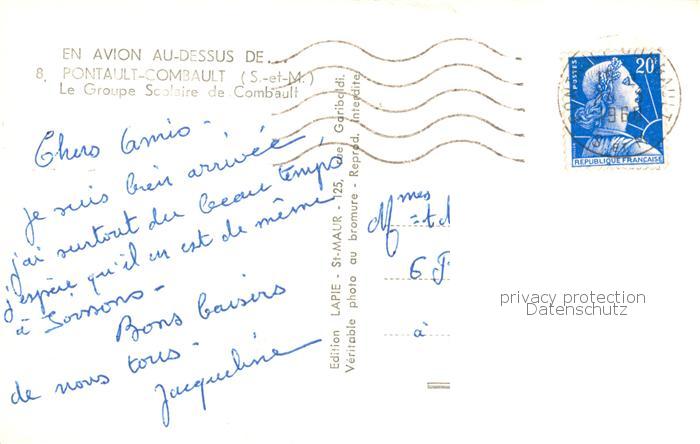 EN AVION AU-DESSUS DE...
8. PONTAULT-COMBAULT (S.-et-M.)
Le Groupe Scolaire de Combault
Chers Amis -
Je suis bien arrivée,
j'ai surtout du beau temps
j'espère qu'il en est de même
à Soissons -
Bons baisers
de nous tous -
Jacqueline
Edition LAPIE - St-MAUR - 125, rue Garibaldi.
Véritable photo au bromure - Reprod. interdite
20F
POSTES
REPUBLIQUE FRANÇAISE
mes
M
6
à
privacy protection
Datenschutz